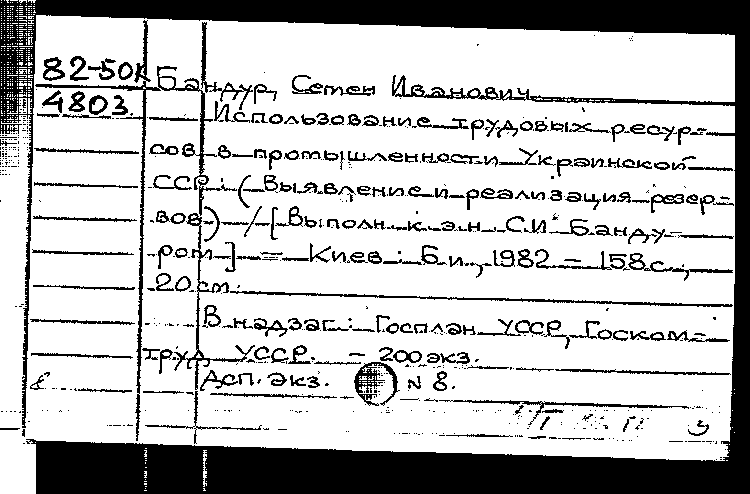 82-50к
4803
Бандур, Семен Иванович
Использование трудовых ресур-
сов в промышленности Украинской
ССР: (Выявление и реализация резер-
вов) / [Выполн. к.э.н. С.И. Банду-
ром] — Киев: Б.и., 1982 - 158с.;
20 см.
В надзаг.: Госплан УССР, Госком-
труд УССР. - 200 экз.
Асп. экз. N 8.